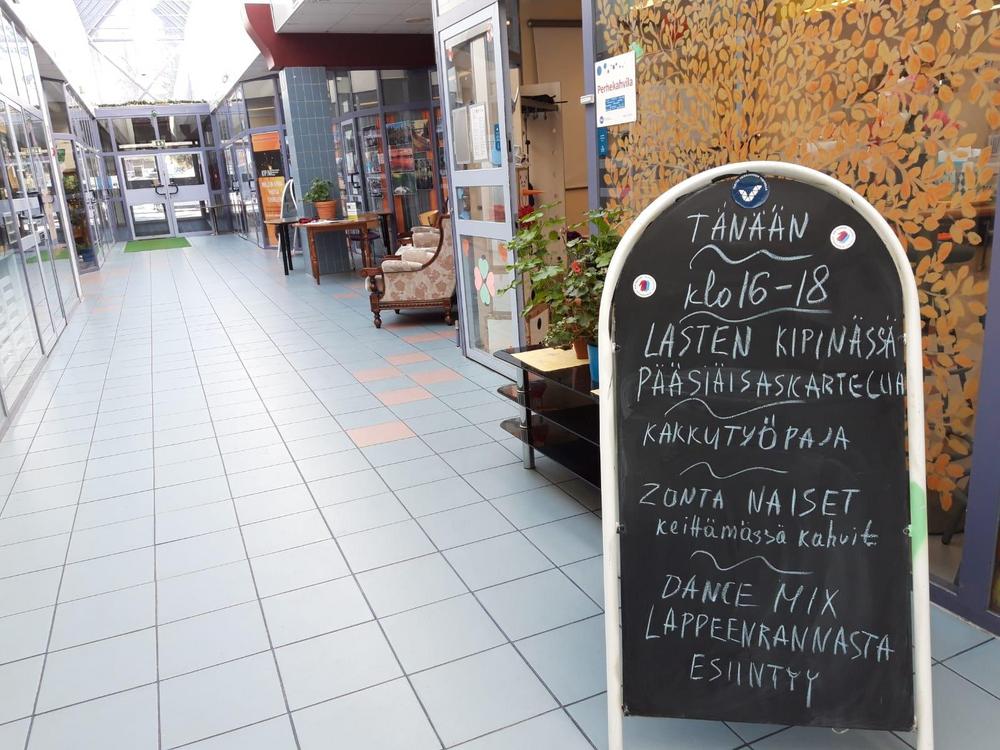 Perhekahvila
TÄNÄÄN
klo 16-18
LASTEN KIPINÄSSÄ
PÄÄSIÄISASKARTELUA
KAKKUTYÖPAJA
ZONTA NAISET
keittämässä kahvit
DANCE MIX
LAPPEENRANNASTA
ESIINTYY